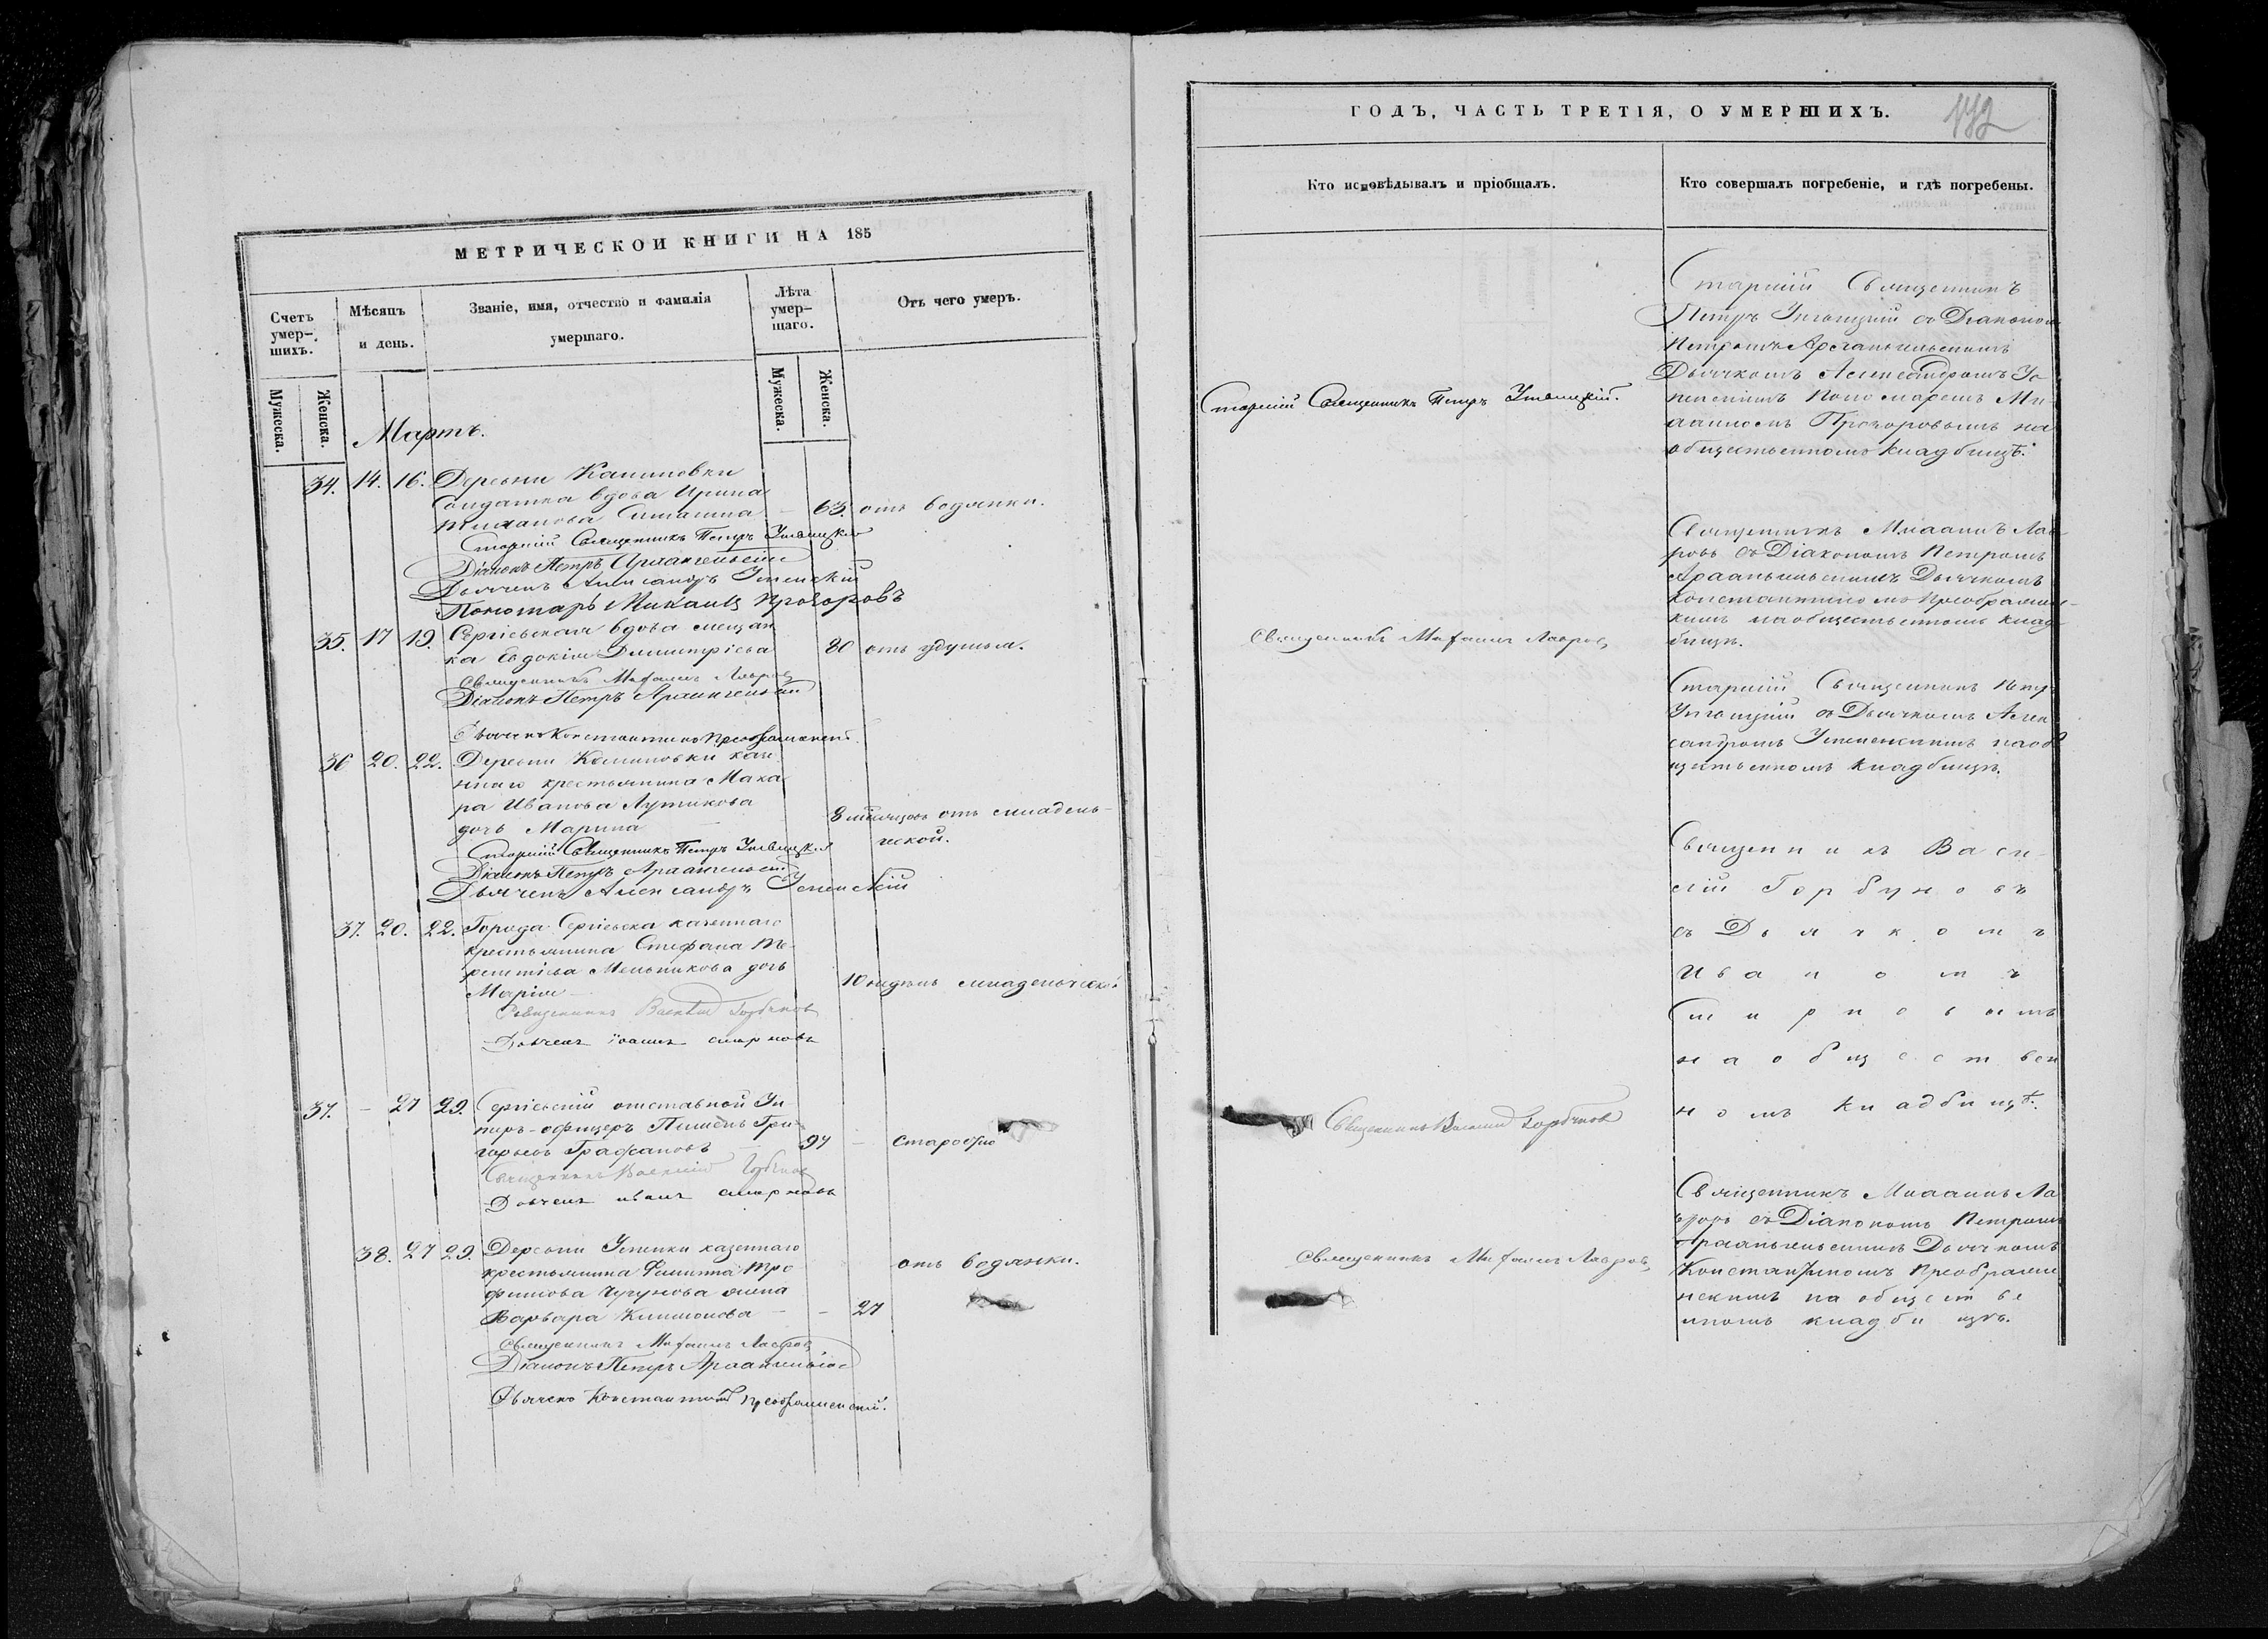 МЕТРИЧЕСКОЙ КНИГИ НА 185
Счетъ умер-шихъ.
Мѣсяцъ и день.
Званіе, имя, отчество и фамилія умершаго.
Лѣта умер-шаго.
Отъ чего умеръ.
Мужеска.
Женска.
Мужеска.
Женска.
Мартъ.
34. 14. 16. Деревни Калиновки
Солдатка вдова Ирина
63. отъ водянки.
Старшій Священникъ Петръ
Діаконъ Петръ Архангельскій
Дьячекъ Александръ Успенскій
Пономарь Михаилъ Прохоровъ
35. 17 19. Сергіевская вдова мещан
ка Евдокія Димитріева 80 отъ удушья.
Священникъ Михаилъ Лавровъ
Діаконъ Петръ Архангельскій
Дьячекъ Константинъ Преображенскій.
36 20. 22. Деревни Калиновки казе
ннаго крестьянина Мака
ра Иванова Лутикова
дочь Марина 8 мѣсяцовъ отъ младень-
ческой.
Старшій Священникъ Петръ
Діаконъ Петръ Архангельскій
Дьячекъ Александръ Успенскій
37. 20. 22. Города Сергіевска казеннаго
крестьянина Стефана Те-
рентіева Мельникова дочь
Марія 10 недѣль младенческой
Священникъ Василій Горбуновъ
Дьячекъ Іоаннъ Смирновъ
37. – 27 29. Сергіевскій отставной Ун
теръ-офицеръ Пименъ Гри-
горьевъ 97 – старости
Священникъ Василій Горбуновъ
Дьячекъ Иванъ Смирновъ
38. 27 29. Деревни Успенки казеннаго
крестьянина Филиппа Тро
фимова Чугунова жена отъ водянки.
Варвара Климонова – – 27
Священникъ Михаилъ Лавровъ
Діаконъ Петръ Архангельскій
Дьячекъ Константинъ Преображенскій.
ГОДЪ, ЧАСТЬ ТРЕТІЯ, О УМЕРШИХЪ.
Кто исповѣдывалъ и пріобщалъ.
Кто совершалъ погребеніе, и гдѣ погребены.
Старшій Священникъ Петръ
Старшій Священникъ
Петръ съ Діакономъ
Петромъ Архангельскимъ
Дьячкомъ Александромъ Ус
пенскимъ Пономаремъ Ми
хаиломъ Прохоровымъ на
общественномъ кладбищѣ.
Священникъ Михаилъ Лавровъ
Священникъ Михаилъ Лав
ровъ съ Діакономъ Петромъ
Архангельскимъ Дьячкомъ
Константиномъ Преображенс-
кимъ на общественномъ клад
бищѣ.
Старшій Священникъ Петръ
съ Дьячкомъ Алек
сандромъ Успенскимъ на об
щественномъ кладбищѣ.
Священникъ Васи-
лій Горбуновъ
съ Дьячкомъ
Иваномъ
Смирновымъ
на обществен
номъ кладбищѣ.
Священникъ Василій Горбуновъ
Священникъ Михаилъ Лавровъ
Священникъ Михаилъ Ла
вровъ съ Діакономъ Петромъ
Архангельскимъ Дьячкомъ
Константиномъ Преображе
нскимъ на обществе
нномъ кладбищѣ.